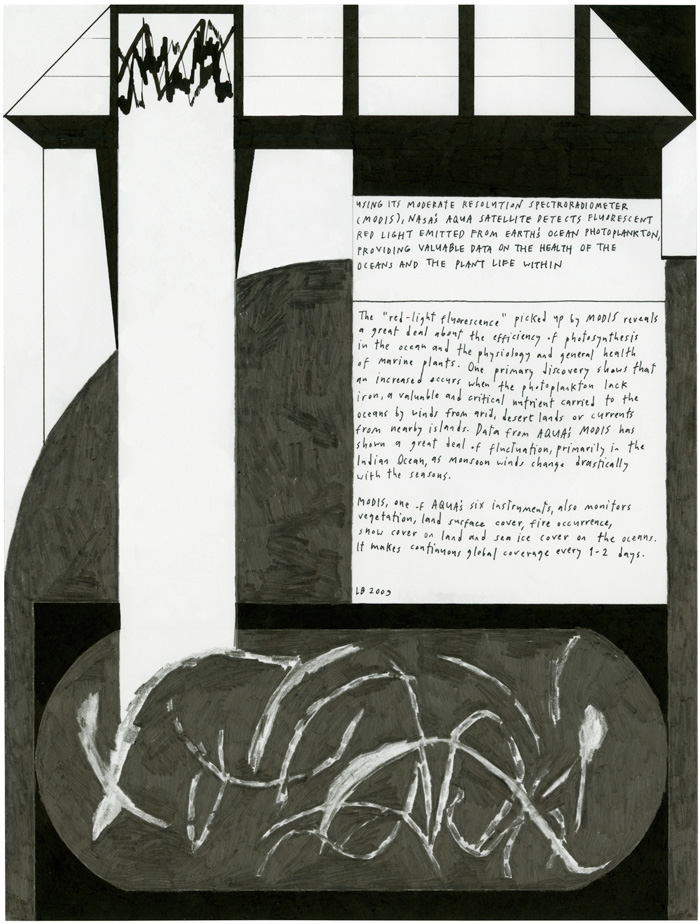 USING ITS MODERATE RESOLUTION SPECTRORADIOMETER
(MODIS), NASA'S AQUA SATELLITE DETECTS FLUORESCENT
RED LIGHT EMITTED FROM EARTH'S OCEAN PHOTOPLANKTON,
PROVIDING VALUABLE DATA ON THE HEALTH OF THE
OCEANS AND THE PLANT LIFE WITHIN
The "red-light fluorescence" picked up by MODIS reveals
a great deal about the efficiency of photosynthesis
in the ocean and the physiology and general health
of marine plants. One primary discovery shows that
an increased occurs when the photoplankton lack
iron, a valuable and critical nutrient carried to the
oceans by winds from arid, desert lands or currents
from nearby islands. Data from AQUA's MODIS has
shown a great deal of fluctuation, primarily in the
Indian Ocean, as monsoon winds change drastically
with the seasons.
MODIS, one of AQUA's six instruments, also monitors
vegetation, land surface cover, fire occurrence,
snow cover on land and sea ice cover on the oceans.
It makes continuous global coverage every 1-2 days.
LB 2009